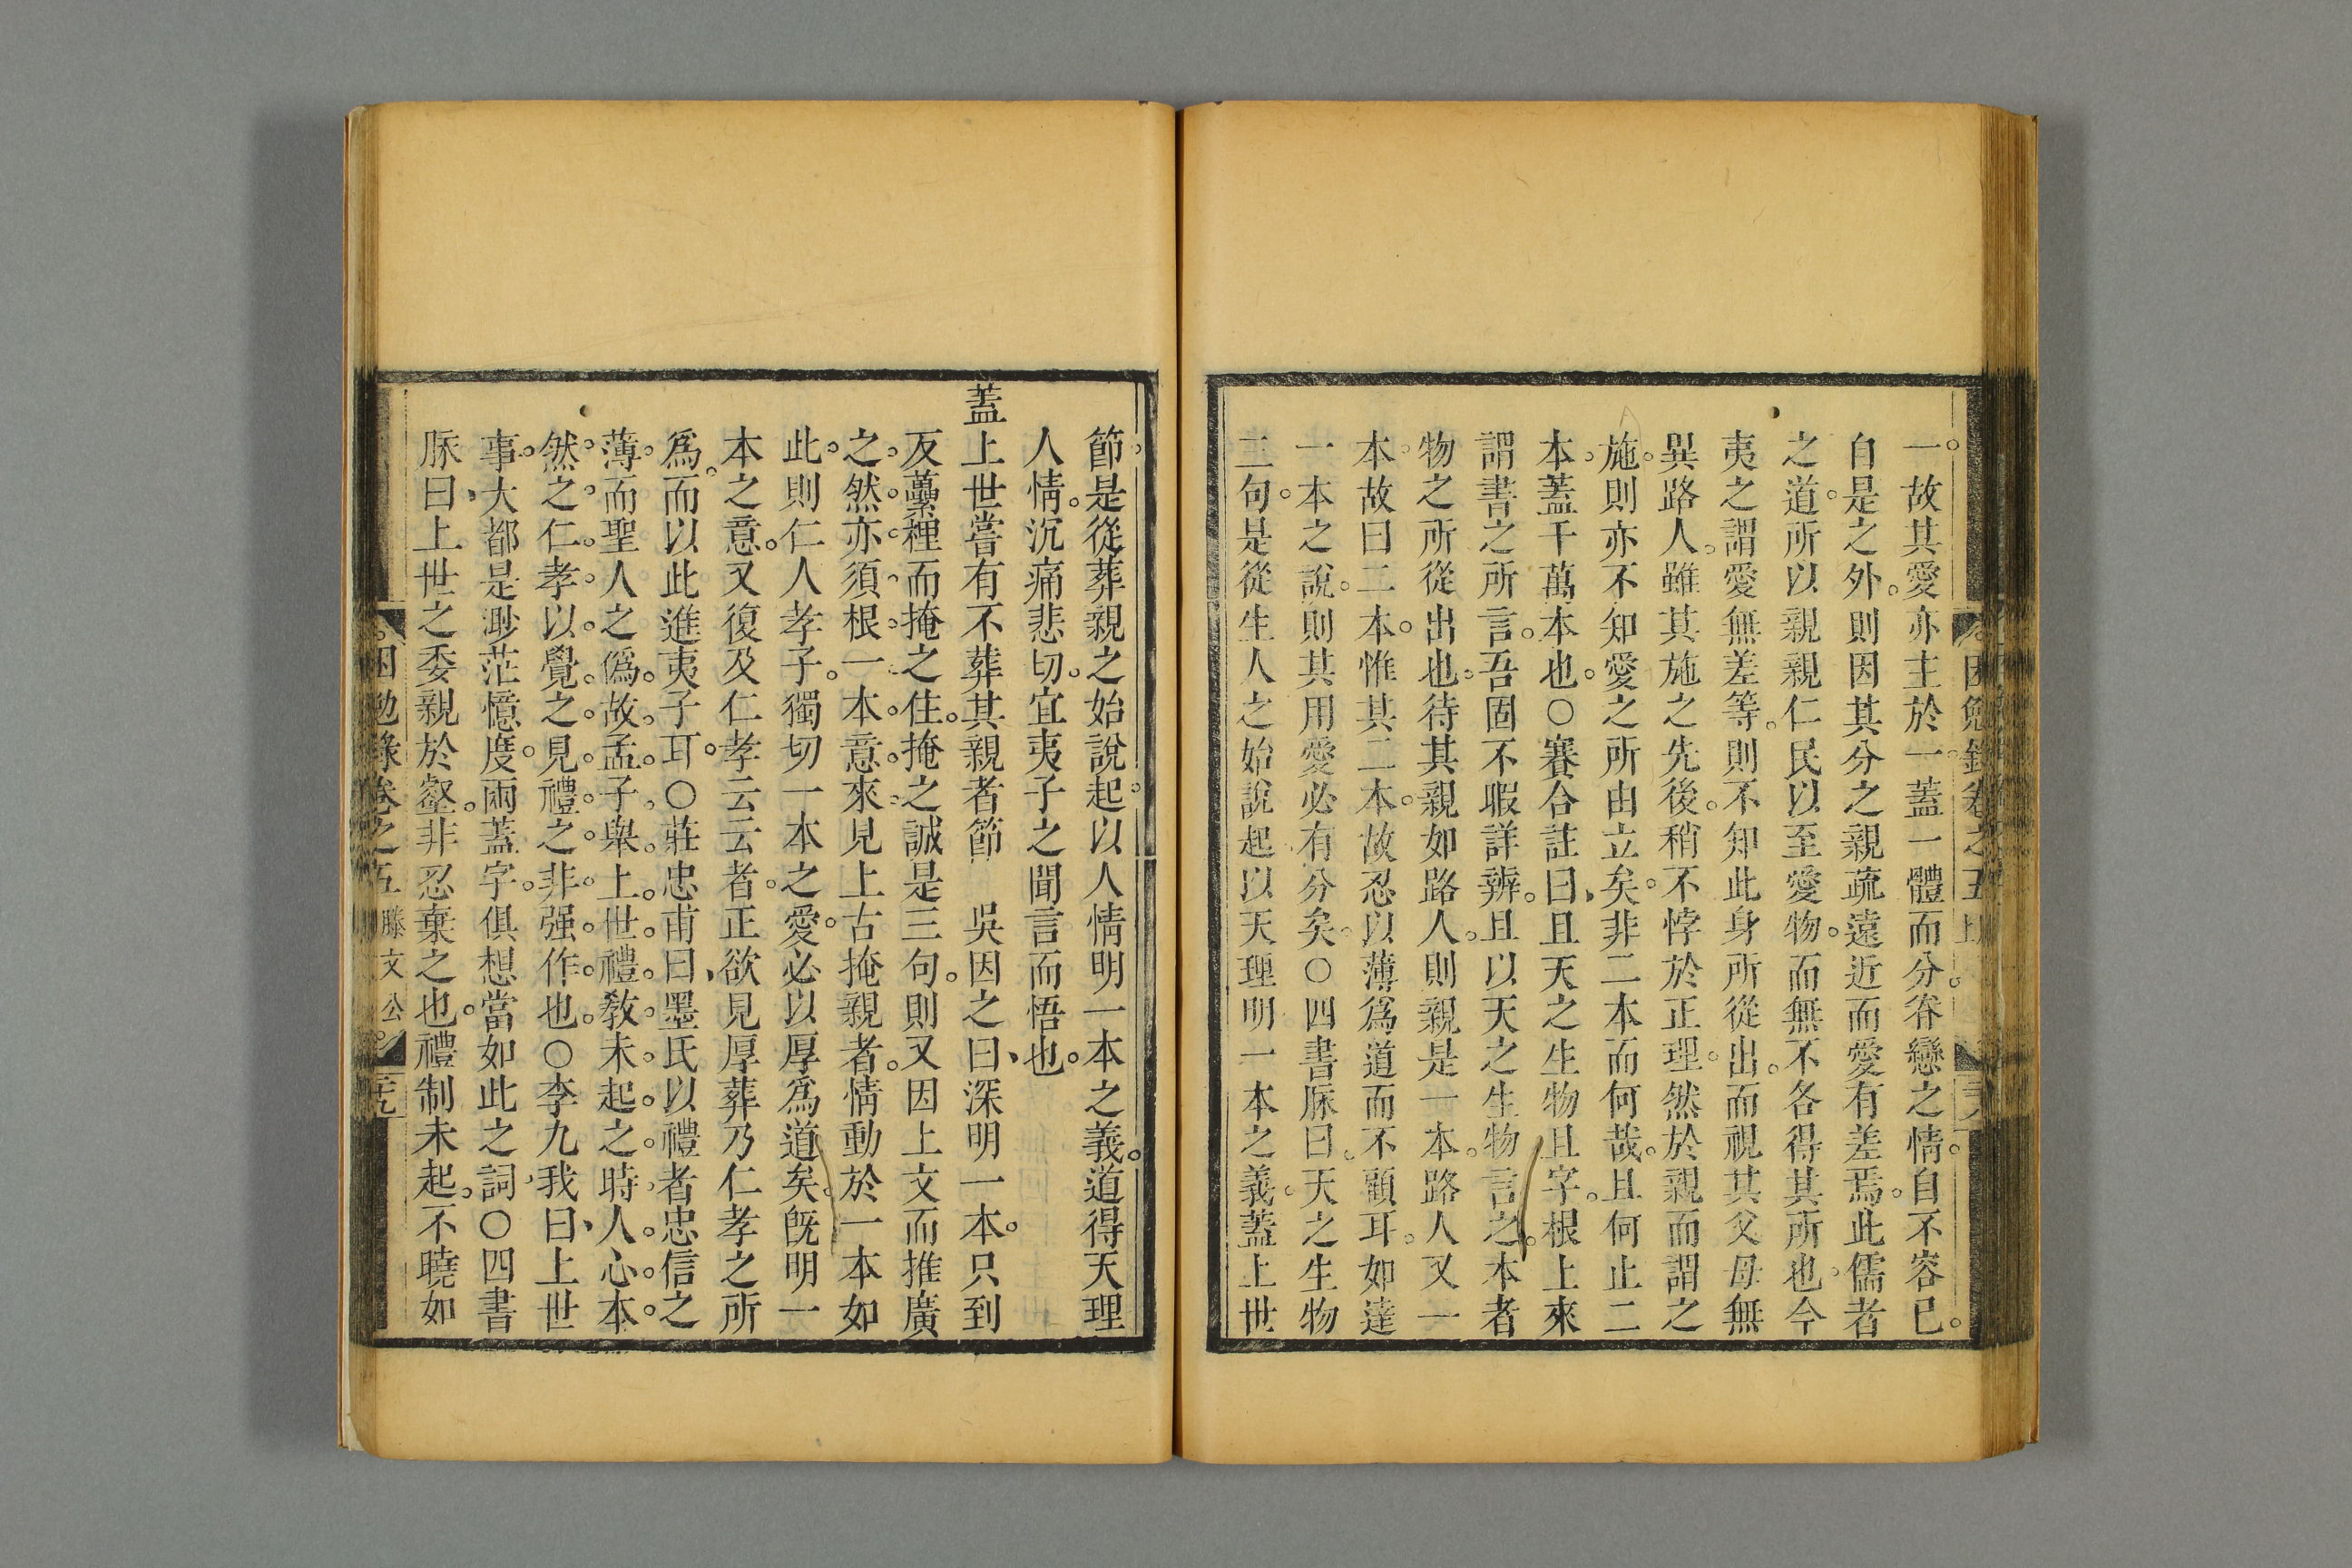 一故其愛亦主於一蓋一體而分眷戀之情自不容已
自是之外則因其分之親疏遠近而愛有差焉此儒者
之道所以親親仁民以至愛物而無不各得其所也今
夷之謂愛無差等則不知此身所從出而視其父母無
異路人雖其施之先後稍不悖於正理然於親而謂之
施則亦不知愛之所由立矣非二本而何哉且何止二
本蓋千萬本也○賽合註曰且天之生物且字根上來
謂書之所言吾固不暇詳辨且以天之生物言之本者
物之所從出也待其親如路人則親是一本路人又一
本故曰二本惟其二本故忍以薄爲道而不顧耳如達
一本之說則其用愛必有分矣○四書脉曰天之生物
三句是從生人之始說起以天理明一本之義蓋上世
節是從葬親之始說起以人情明一本之義道得天理
人情沉痛悲切宜夷子之聞言而悟也
蓋上世嘗有不葬其親者節 吳因之曰深明一本只到
反虆梩而掩之住掩之誠是三句則又因上文而推廣
之然亦須根一本意來見上古掩親者情動於一本如
此則仁人孝子獨切一本之愛必以厚爲道矣旣明一
本之意又復及仁孝云云者正欲見厚葬乃仁孝之所
爲而以此進夷子耳○莊忠甫曰墨氏以禮者忠信之
薄而聖人之僞故孟子舉上世禮敎未起之時人心本
然之仁孝以覺之見禮之非强作也○李九我曰上世
事大都是渺茫憶度兩蓋字俱想當如此之詞○四書
脉曰上世之委親於壑非忍棄之也禮制未起不曉如
困勉錄卷之五 滕文公